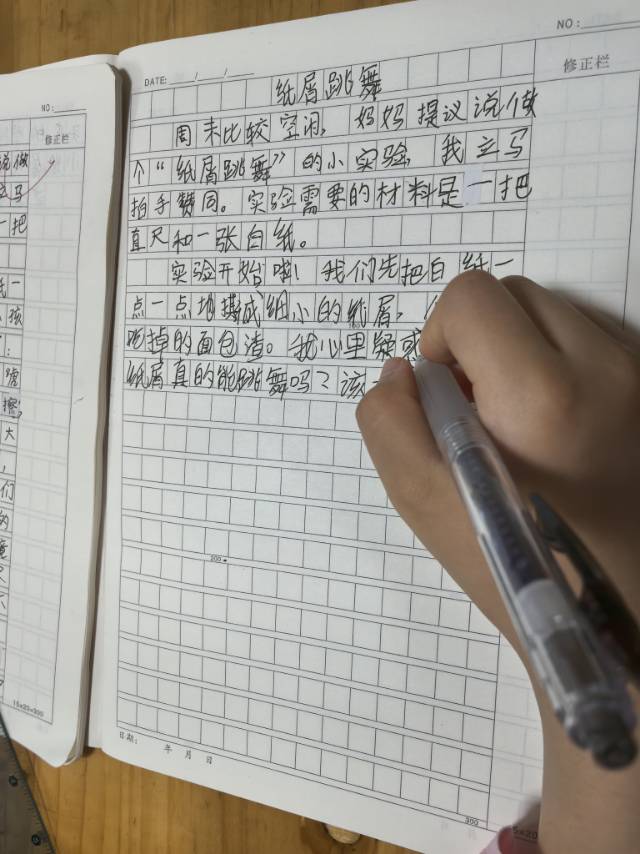 NO:
修正栏
DATE: / /
纸屑跳舞
周末比较空闲，妈妈提议说做
个“纸屑跳舞”的小实验，我立马
拍手赞同。实验需要的材料是一把
直尺和一张白纸。
实验开始啦！我们先把白纸一
点一点地撕成细小的纸屑，
掉的面包渣。我心里疑惑
纸屑真的能跳舞吗？该
200
日期： 年 月 日
300
15×20
NO:
修正栏
说做
立马
一把
纸一
孩
：
擦，
大
，
们
的
15×20=300